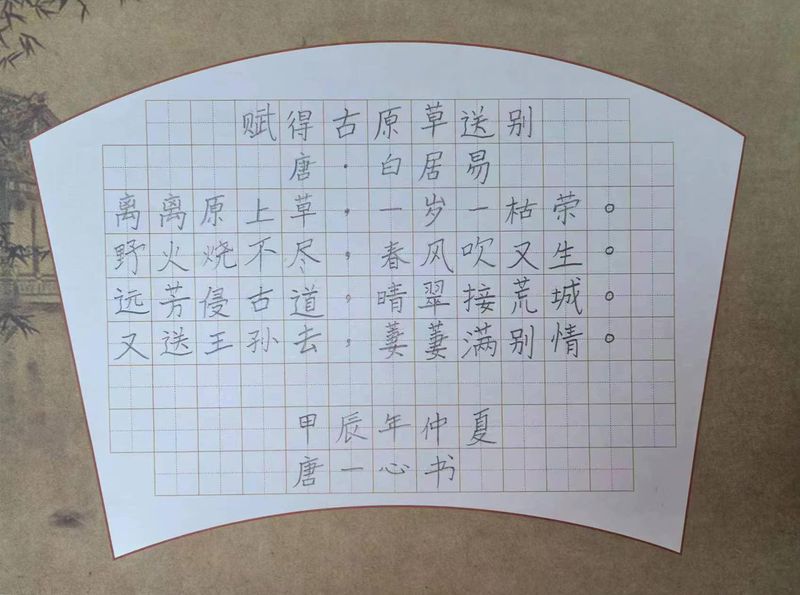 赋得古原草送别
唐·白居易
离离原上草，一岁一枯荣。
野火烧不尽，春风吹又生。
远芳侵古道，晴翠接荒城。
又送王孙去，萋萋满别情。
甲辰年仲夏
唐一心书